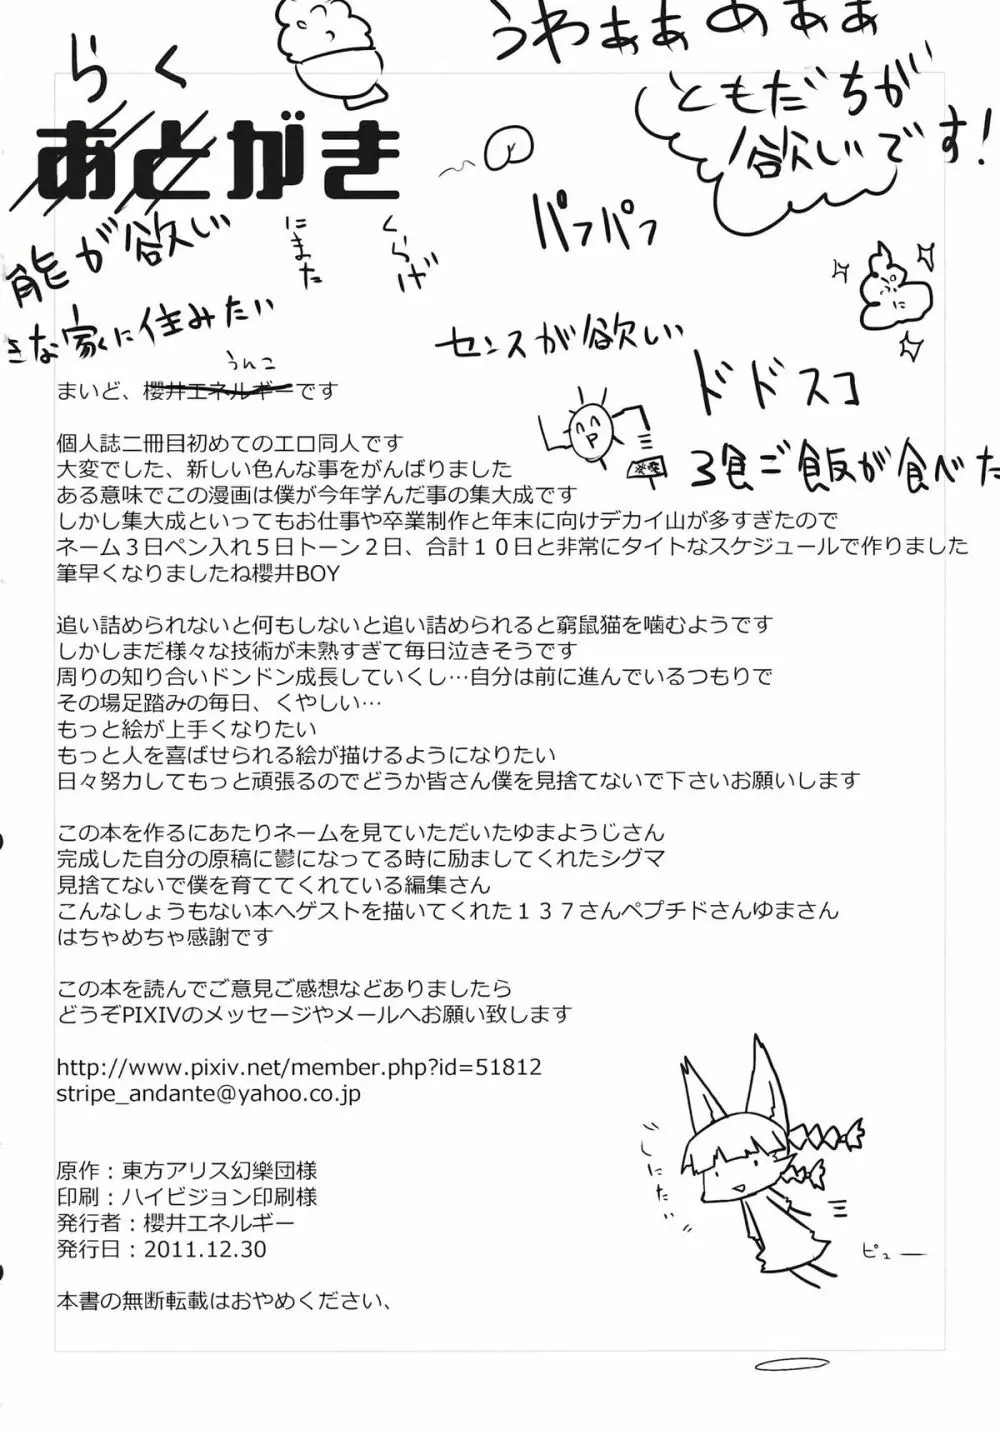 うわぁぁぁぁぁ
らく
ともだちが
欲しいです！
あとがき
パフパフ
能が欲しい
にまた
くらげ
きな家に住みたい
センスが欲しい
うんこ
ドドスコ
3食ご飯が食べた
まいど、櫻井エネルギーです
個人誌二冊目初めてのエロ同人です
大変でした、新しい色んな事をがんばりました
ある意味でこの漫画は僕が今年学んだ事の集大成です
しかし集大成といってもお仕事や卒業制作と年末に向けデカイ山が多すぎたので
ネーム３日ペン入れ５日トーン２日、合計１０日と非常にタイトなスケジュールで作りました
筆早くなりましたね櫻井BOY
追い詰められないと何もしないと追い詰められると窮鼠猫を噛むようです
しかしまだ様々な技術が未熟すぎて毎日泣きそうです
周りの知り合いドンドン成長していくし…自分は前に進んでいるつもりで
その場足踏みの毎日、くやしい…
もっと絵が上手くなりたい
もっと人を喜ばせられる絵が描けるようになりたい
日々努力してもっと頑張るのでどうか皆さん僕を見捨てないで下さいお願いします
この本を作るにあたりネームを見ていただいたゆまようじさん
完成した自分の原稿に鬱になってる時に励ましてくれたシグマ
見捨てないで僕を育ててくれている編集さん
こんなしょうもない本へゲストを描いてくれた１３７さんペプチドさんゆまさん
はちゃめちゃ感謝です
この本を読んでご意見ご感想などありましたら
どうぞPIXIVのメッセージやメールへお願い致します
http://www.pixiv.net/member.php?id=51812
stripe_andante@yahoo.co.jp
原作：東方アリス幻樂団様
印刷：ハイビジョン印刷様
発行者：櫻井エネルギー
発行日：2011.12.30
本書の無断転載はおやめください、
ピュー